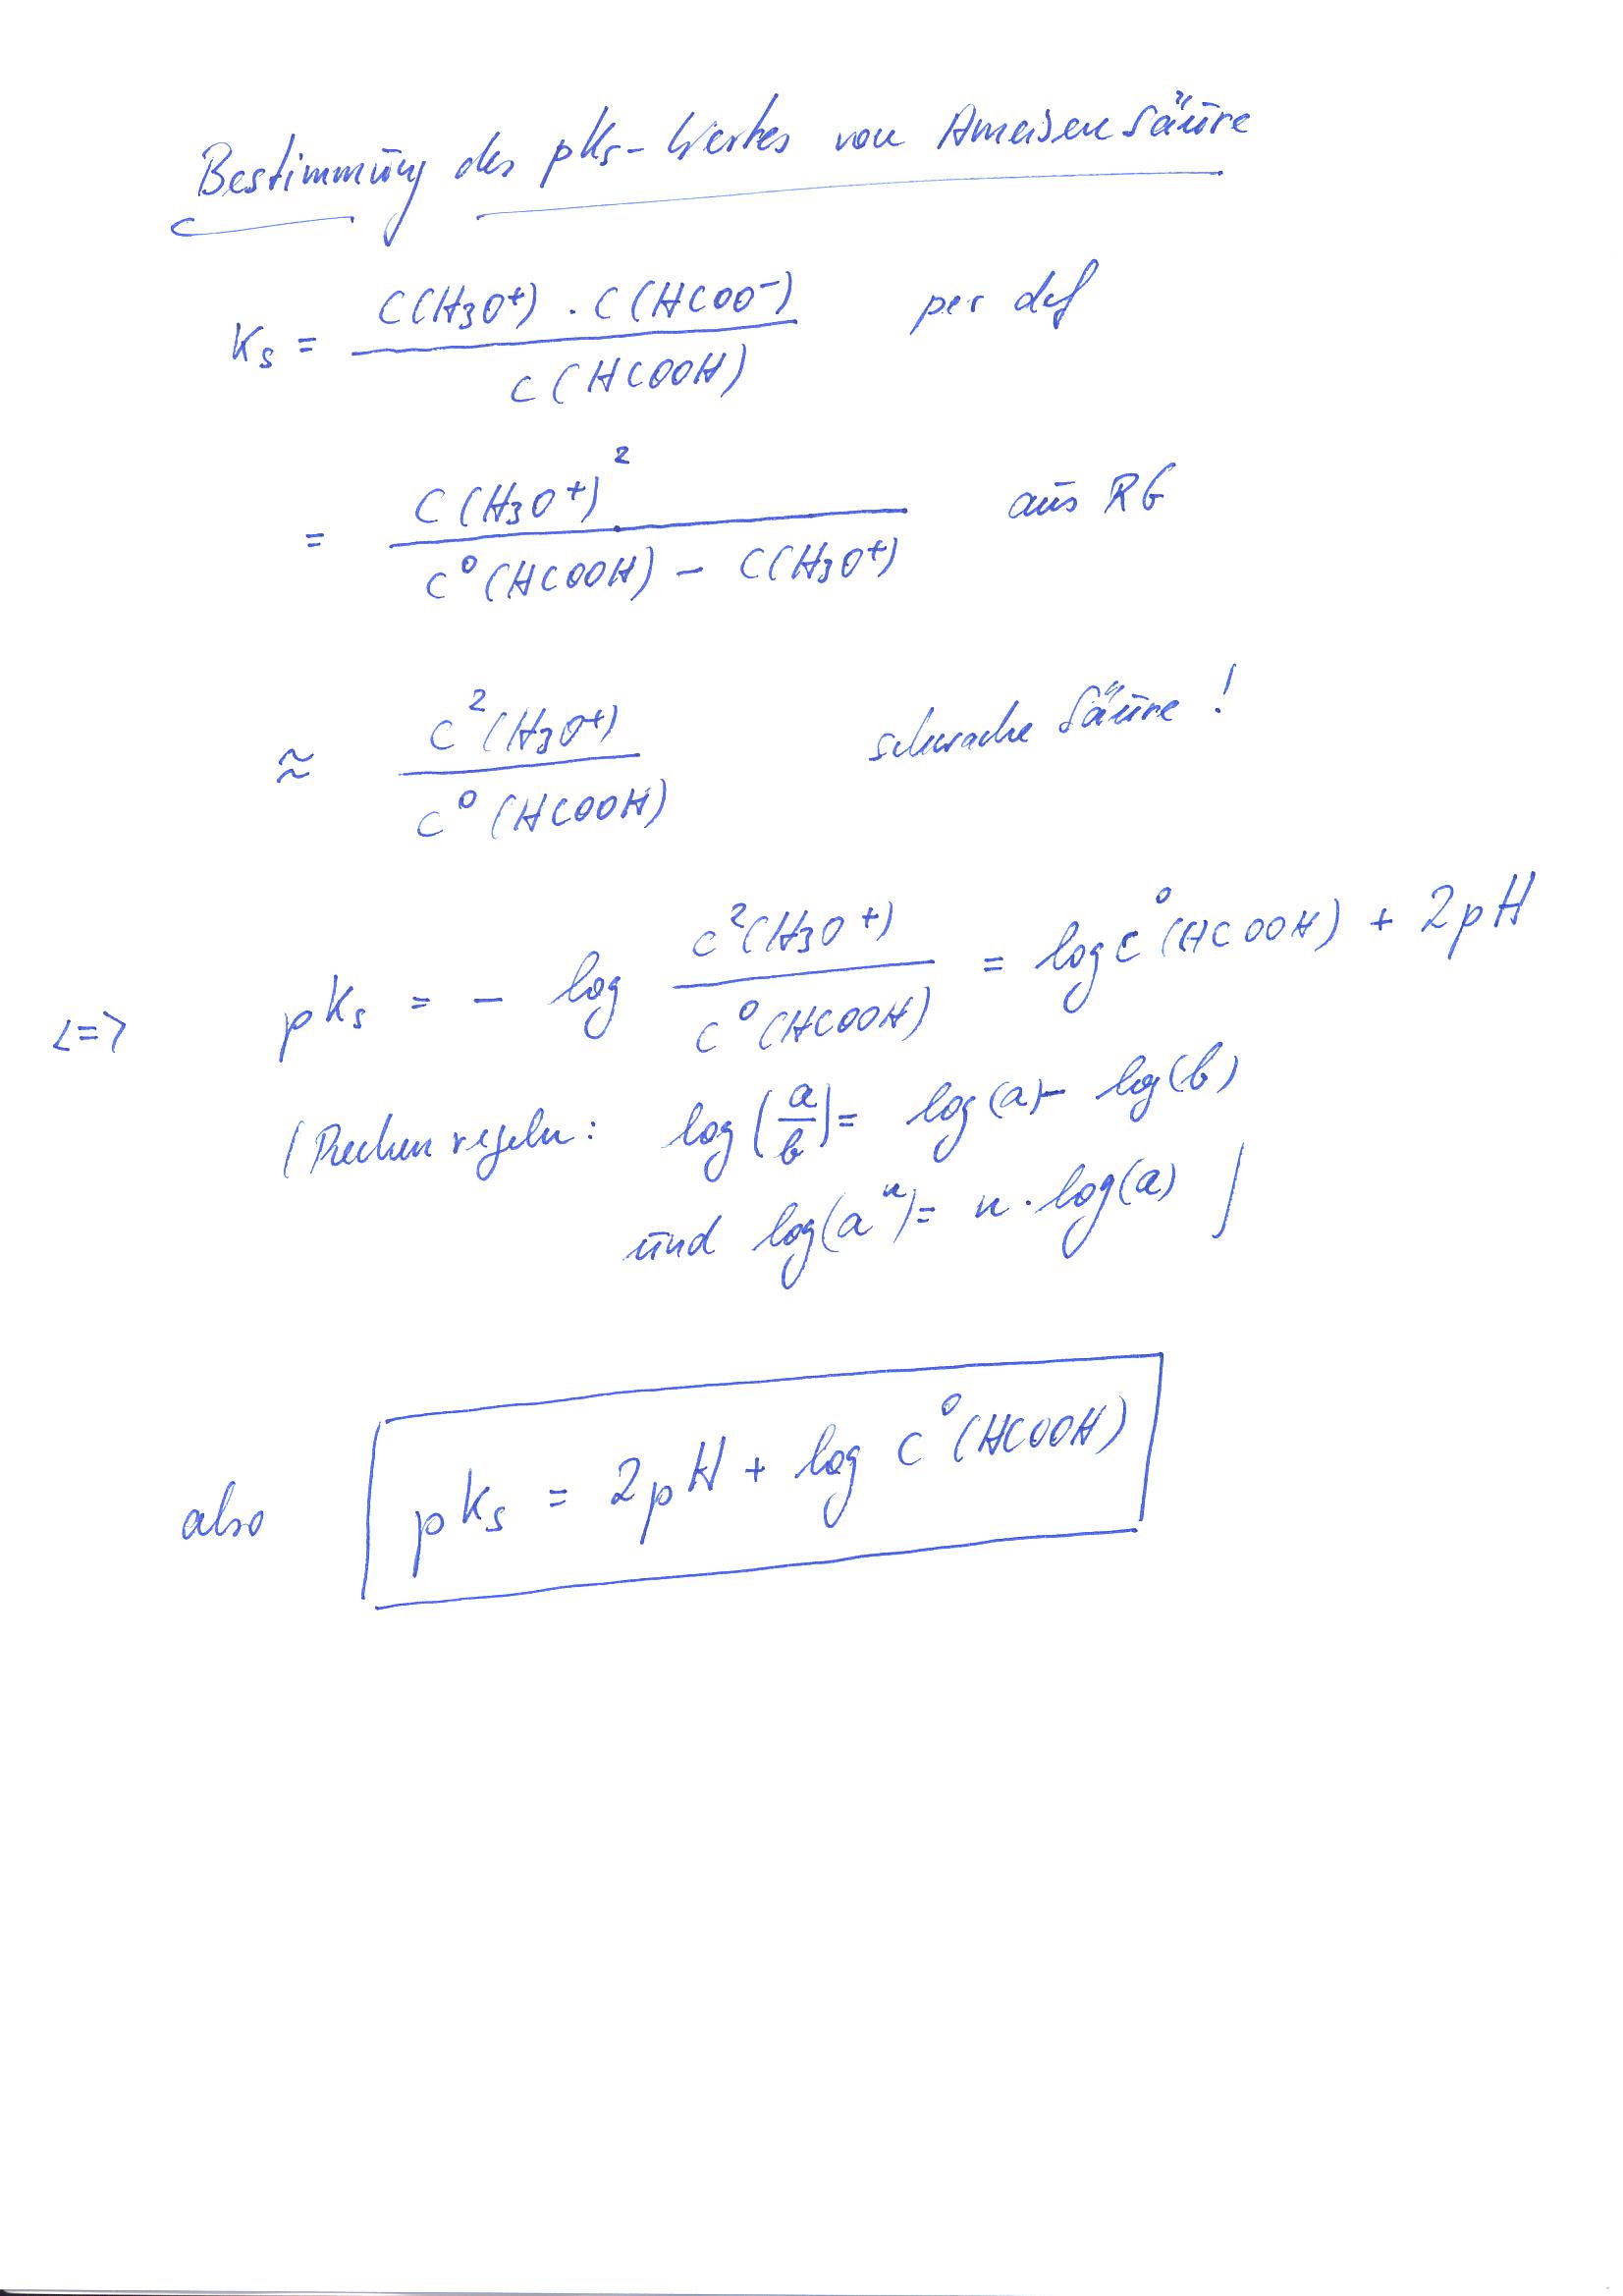 Bestimmung des pKs-Wertes von Ameisensäure
Ks = C(H3O+) · C(HCOO-) / C(HCOOH) per def
= C(H3O+)² / C°(HCOOH) - C(H3O+) aus RG
≈ C²(H3O+) / C°(HCOOH) schwache Säure!
<=> pKs = - log C²(H3O+) / C°(HCOOH) = log C°(HCOOH) + 2pH
(Rechenregeln: log(a/b) = log(a) - log(b)
und log(aⁿ) = n · log(a) )
also pKs = 2pH + log C°(HCOOH)